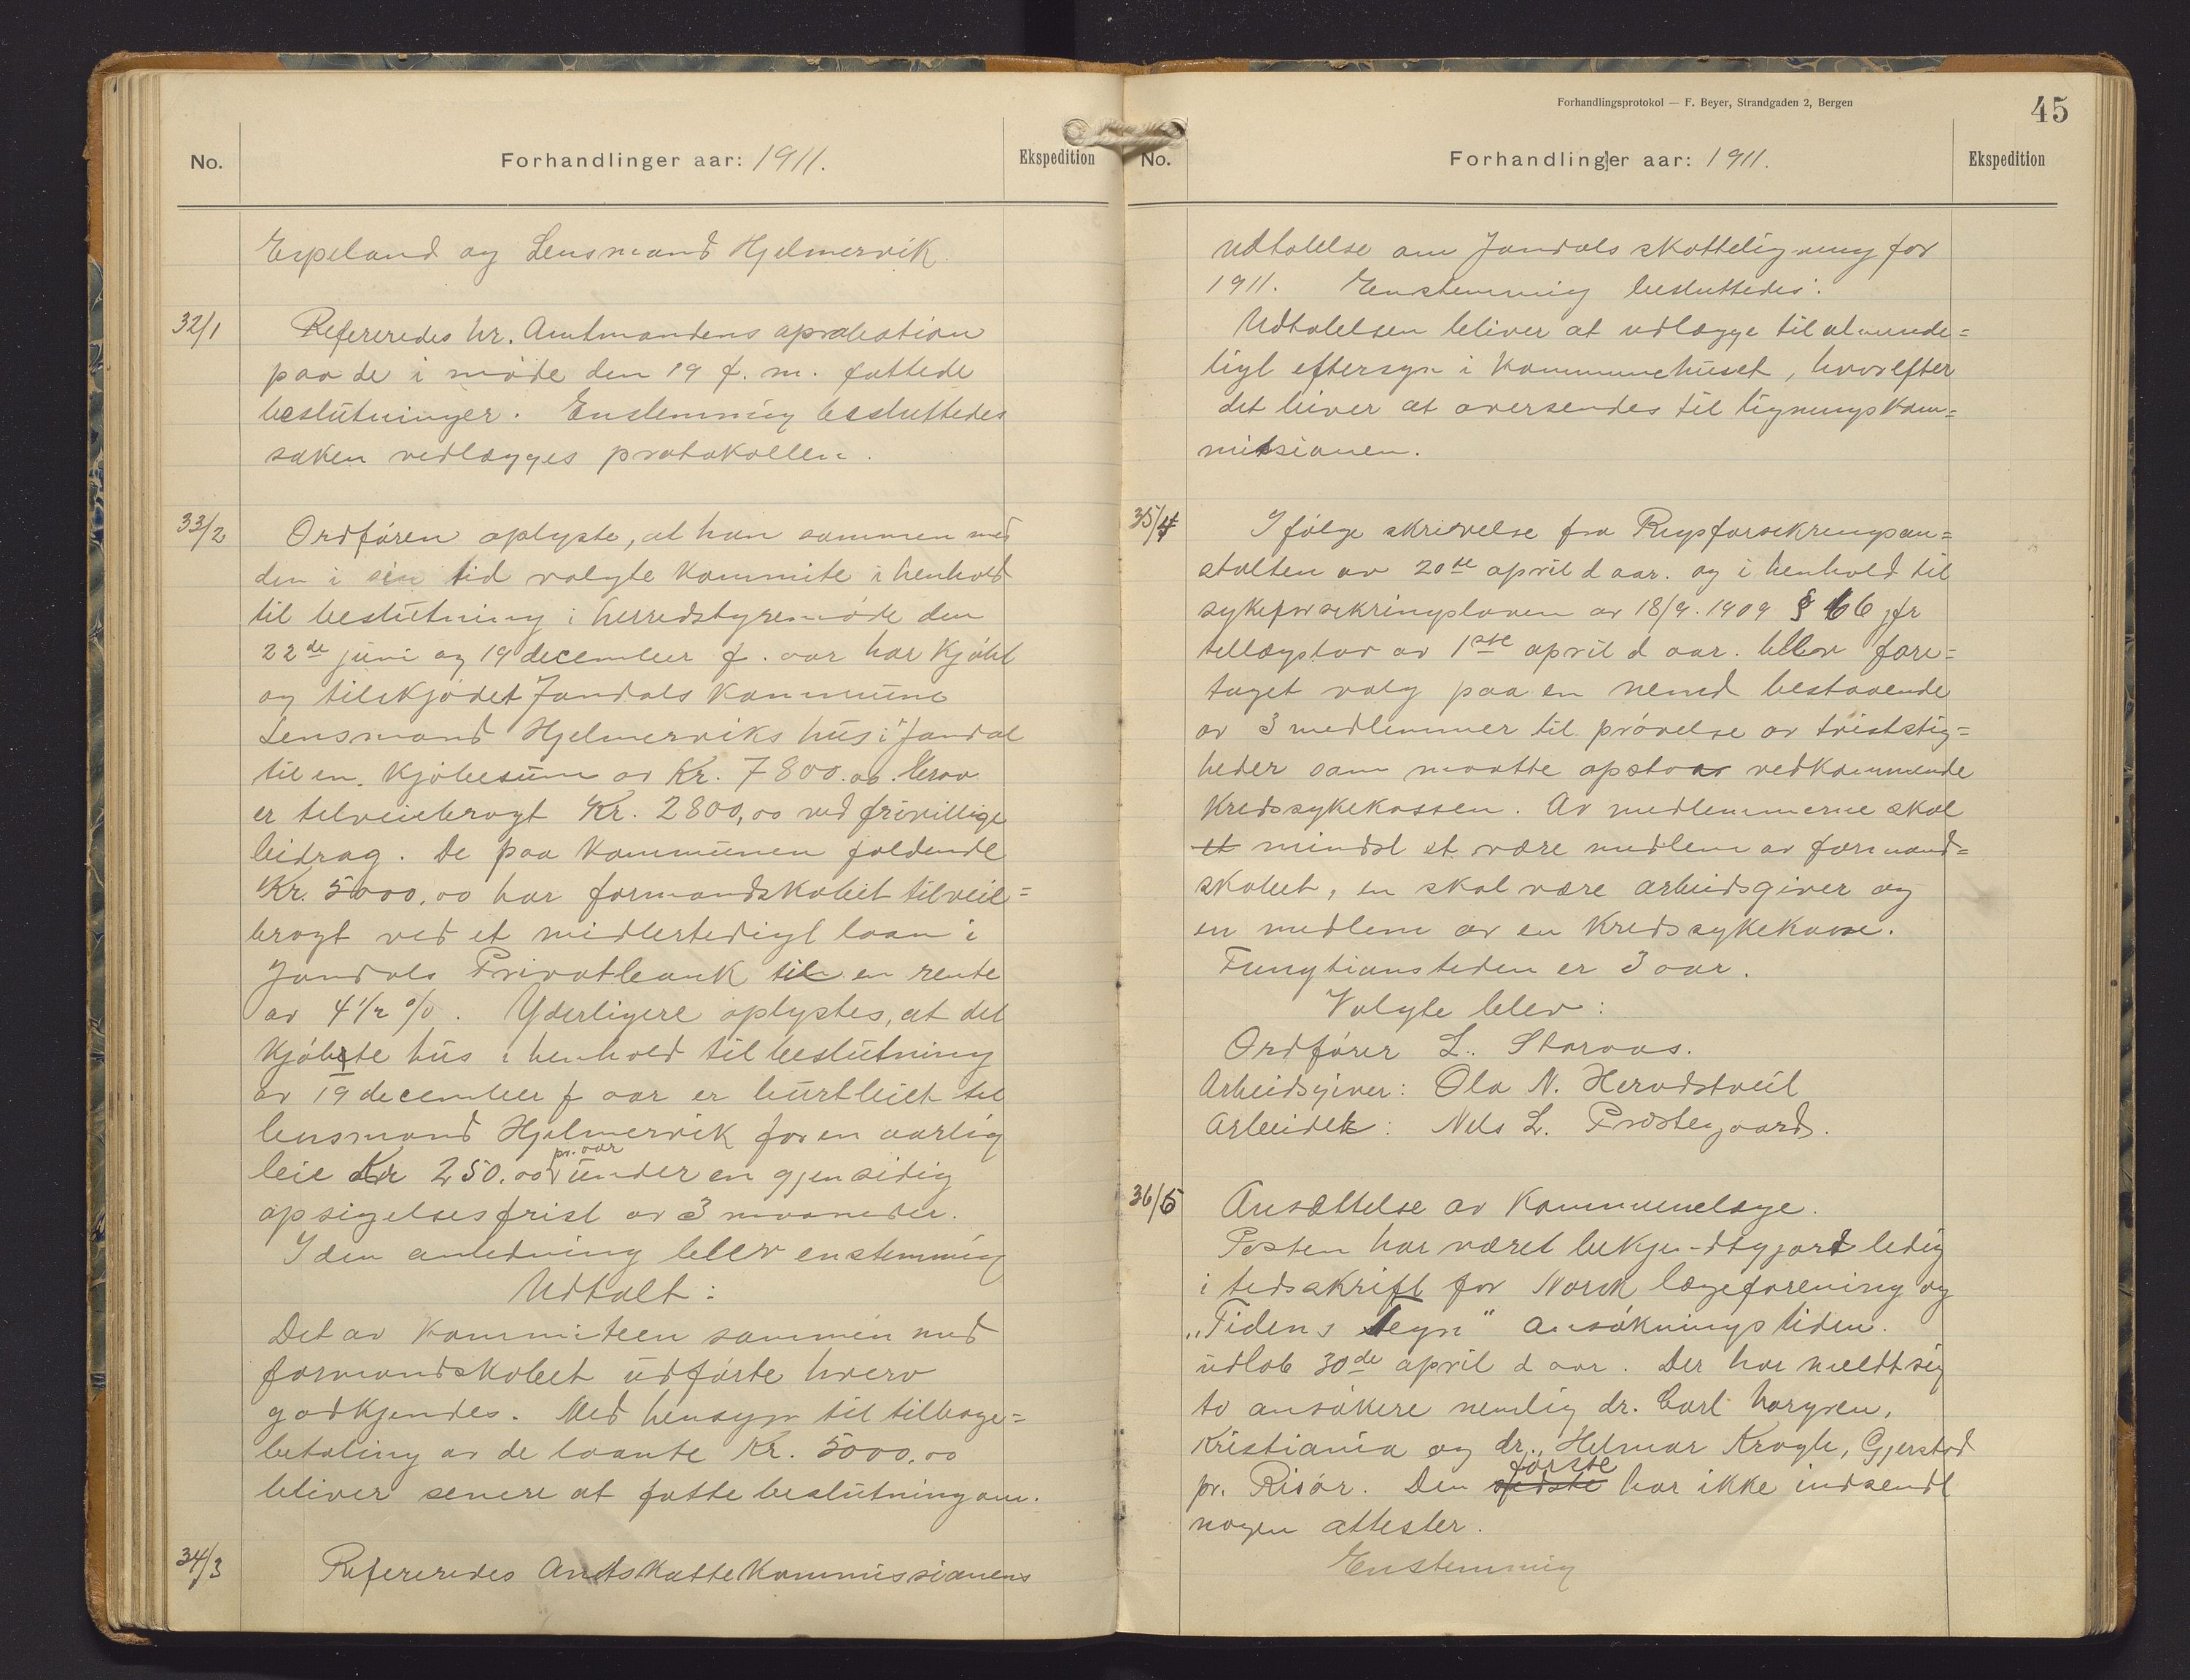 No.
Forhandlinger aar: 1911.
Ekspedition
Espeland og Lensmand Hjelmervik.
32/1
Refereredes hr. Amtmandens aprobation
paa de i møde den 19 f. m. fattede
beslutninger. Enstemmig besluttedes
saken vedlægges protokollen.
33/2
Ordføren oplyste, at han sammen med
den i sin tid valgte Kommite i henhold
til beslutning i herredstyremøde den
22de juni og 19 december f. aar har kjøbt
og tilskjødet Jondals Kommune
Lensmand Hjelmerviks hus i Jondal
til en Kjøbesum av Kr. 7800.00. herav
er tilveiebragt Kr. 2800,00 ved frivillige
bidrag. De paa Kommunen faldende
Kr. 5000,00 har formandskabet tilveie=
bragt ved et midlertedigt laan i
Jondals Privatbank til en rente
av 4 1/2 %. Yderligere oplystes, at det
Kjøbte hus i henhold til beslutning
av 19 december f aar er burtleiet til
lensmand Hjelmervik for en aarlig
leie Kr 250.00 pr. aar under en gjensidig
opsigelsesfrist av 3 maaneder.
I den anledning blev enstemmig
Udtalt:
Det av Kommiteen sammen med
formandskabet udførte hverv
godkjendes. Med hensyn til tilbage=
betaling av de laante Kr. 5000,00
bliver senere at fatte beslutning om.
34/3
Refereredes Amtskattekommissionens
Forhandlingsprotokol — F. Beyer, Strandgaden 2, Bergen
45
No.
Forhandlinger aar: 1911.
Ekspedition
udtalelse om Jondals skatteligning for
1911. Enstemmig besluttedes:
Udtalelsen bliver at udlægge til alminde=
ligt eftersyn i Kommunehuset, hvorefter
det bliver at oversendes til ligningskom=
missionen.
35/4
I følge skrivelse fra Rigsforsikringsan=
stalten av 20de april d aar. og i henhold til
sykeforsikringsloven av 18/9. 1909 § 66 jfr
tillægslov av 1ste april d aar. blev fore=
taget valg paa en nemd bestaaende
av 3 medlemmer til prøvelse av tvistig=
heder som maatte opstaa vedkommende
Kredssykekassen. Av medlemmerne skal
et mindst et være medlem av formand=
skabet, en skal være arbeidsgiver og
en medlem av en Kredssykekasse.
Fungtionstiden er 3 aar.
Valgte blev:
Ordfører L. Storaas.
Arbeidsgiver: Ola N. Heradstveit
Arbeider: Nils L. Prestegaard.
36/5
Ansættelse av Kommunelæge.
Posten har været bekjendtgjort ledig
i tidsskrift for Norsk lægeforening og
„Tidens Tegn" Ansøkningstiden.
udløb 30de april d aar. Der har meldt sig
to ansøkere nemlig dr. Carl
Kristiania og dr. Helmar Krogh, Gjerstad
pr. Risør. Den sidste første har ikke indsendt
nogen attester.
Enstemmig